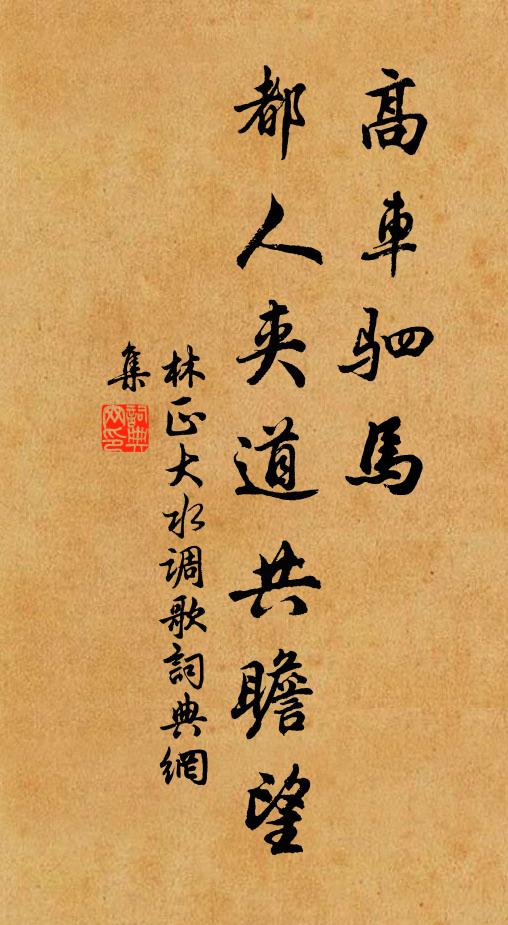 高車駟馬
都人夾道共瞻望
林正大水调歌詞典網
集
詞典網印